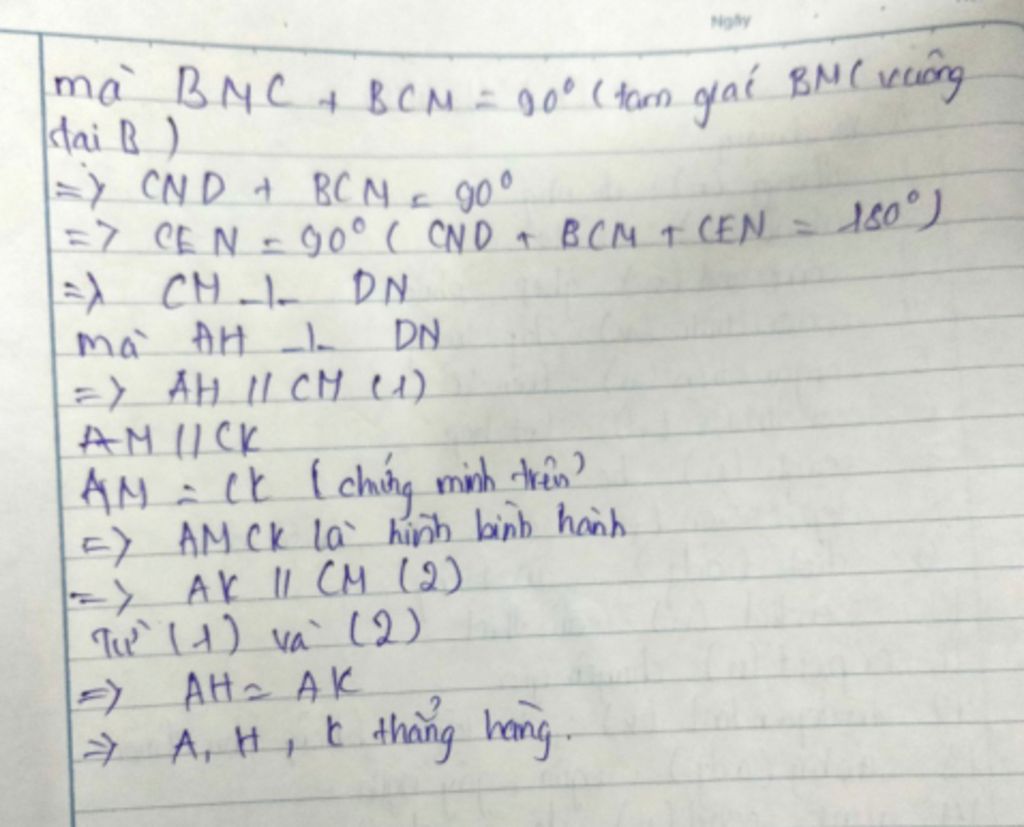 Ngày
mà BMC + BCM = 90° (tam giác BMC vuông
tại B)
=> CND + BCM = 90°
=> CEN = 90° ( CND + BCM + CEN = 180°)
=> CM _|_ DN
mà AH _|_ DN
=> AH // CM (1)
AM // CK
AM = CK (chứng minh trên)
=> AMCK là hình bình hành
=> AK // CM (2)
Từ (1) và (2)
=> AH = AK
=> A, H, K thẳng hàng.